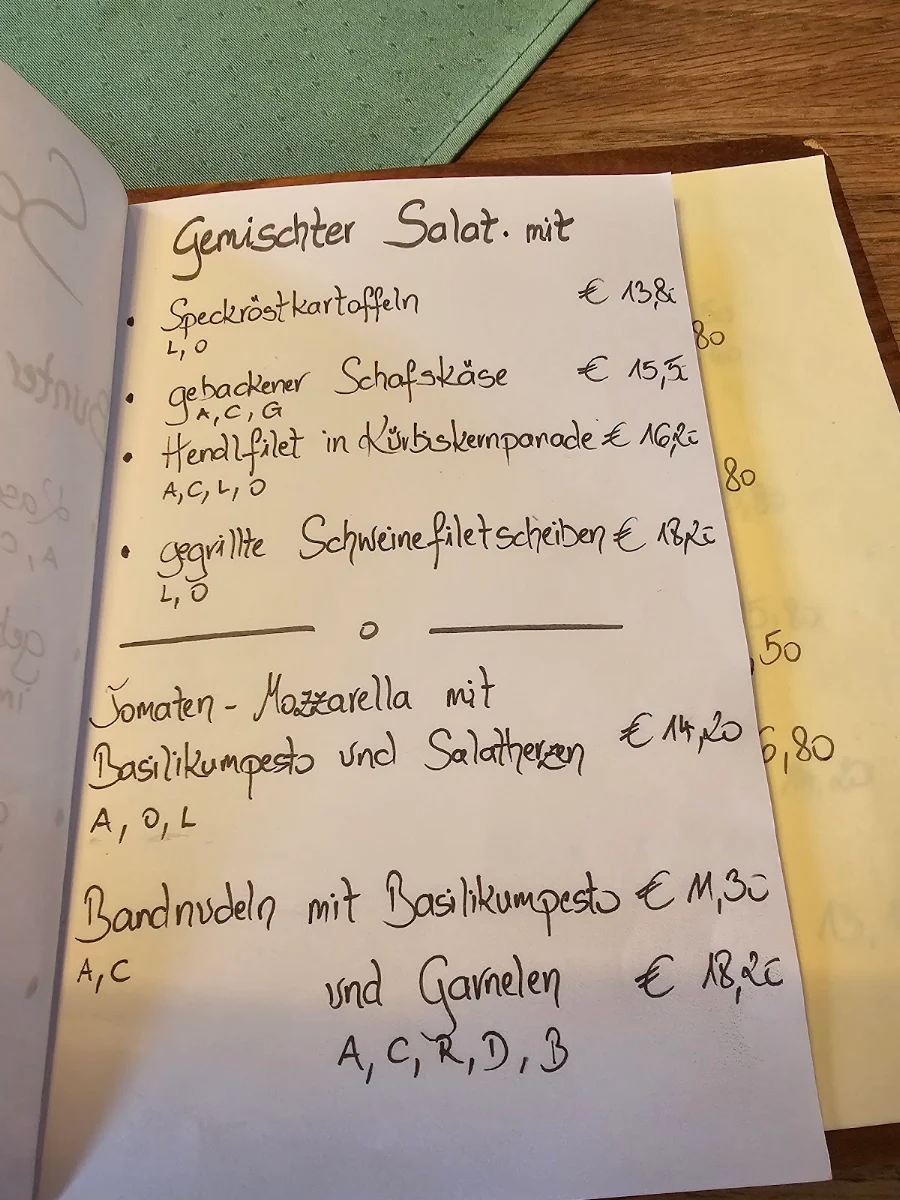 Gemischter Salat. mit
• Speckröstkartoffeln € 13,80
L, O
• gebackener Schafskäse € 15,50
A, C, G
• Hendlfilet in Kürbiskernpanade € 16,20
A, C, L, O
• gegrillte Schweinefiletscheiben € 18,20
L, O
o
Tomaten - Mozzarella mit
Basilikumpesto und Salatherzen € 14,20
A, O, L
Bandnudeln mit Basilikumpesto € 11,30
A, C
und Garnelen € 18,20
A, C, R, D, B
80
80
,50
6,80